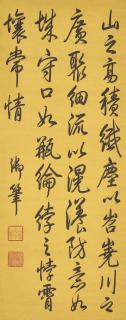 山之高積纖塵以岧嶢川之
廣聚細流以滉瀁防意如
城守口如瓶綸綍之悖霄
壤常情
御筆